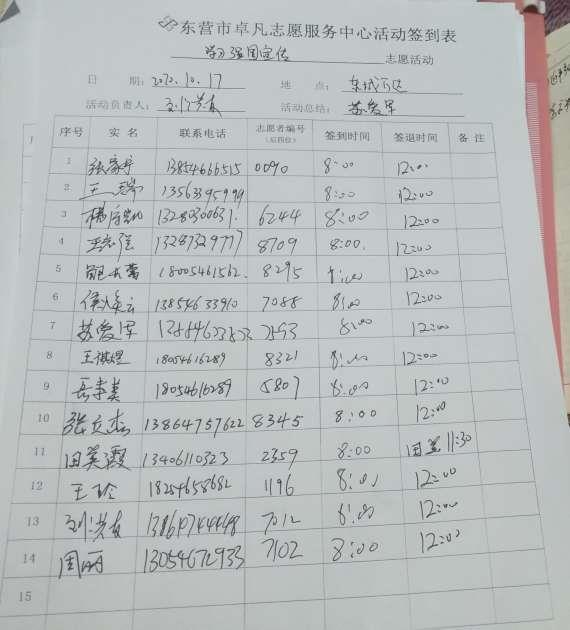 东营市卓凡志愿服务中心活动签到表
学习强国宣传 志愿活动
日 期：2020.10.17 地 点：东城万达
活动负责人：刘洪友 活动总结：苏爱军
序号 实 名 联系电话 志愿者编号（后四位） 签到时间 签退时间 备 注
1 13854666515 0090 8:00 12:00
2 王瑞 13563395999 8:00 12:00
3 1328030063 6244 8:00 12:00
4 13287329777 8709 8:00 12:00
5 18005461562 8295 8:00 12:00
6 13854633910 7088 8:00 12:00
7 苏爱军 8:00 12:00
8 王淑煜 18054616289 8321 8:00 12:00
9 18054616289 5807 8:00 12:00
10 张文杰 13864757622 8345 8:00 12:00
11 田英霞 13406110323 2359 8:00 11:30
12 王玲 18254658682 1196 8:00 12:00
13 刘洪友 7012 8:00 12:00
14 周丽 13054672933 7102 8:00 12:00
15